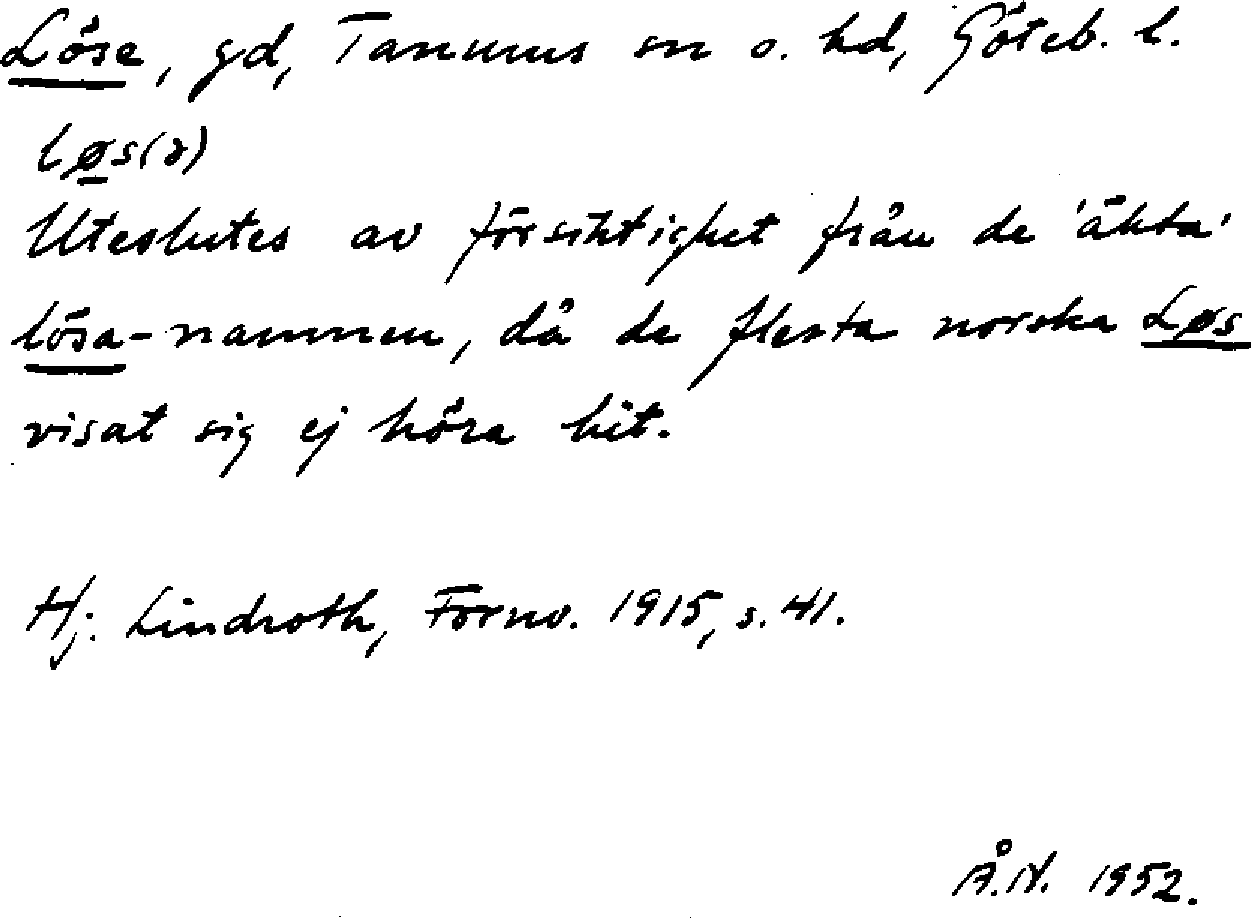 Löse, gd, Tanums sn o. hd, Göteb. l.
lø̱s(ə)
Uteslutes av försiktighet från de 'äkta'
lösa-namnen, då de flesta norska Løs
visat sig ej höra hit.
Hj. Lindroth, Fornv. 1915, s. 41.
Å.N. 1952.